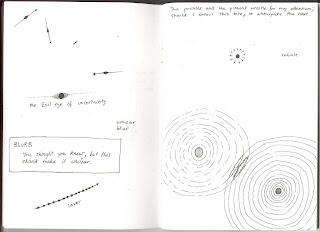 the Evil eye of uncertainty
blur
BLURB
You thought you knew, but this
should make it unclear.
The possible and the present wrestle for my attention,
should I savour this bite, or anticipate the next.
radiate